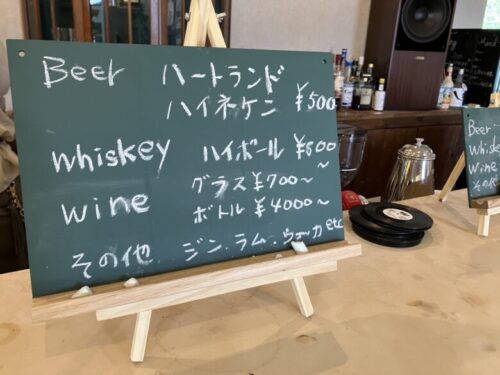 Beer ハートランド
ハイネケン ¥500
whiskey ハイボール ¥500~
wine グラス ¥700~
ボトル ¥4000~
その他 ジン.ラム.ウォッカetc
Beer
Whiskey
Wine
その他